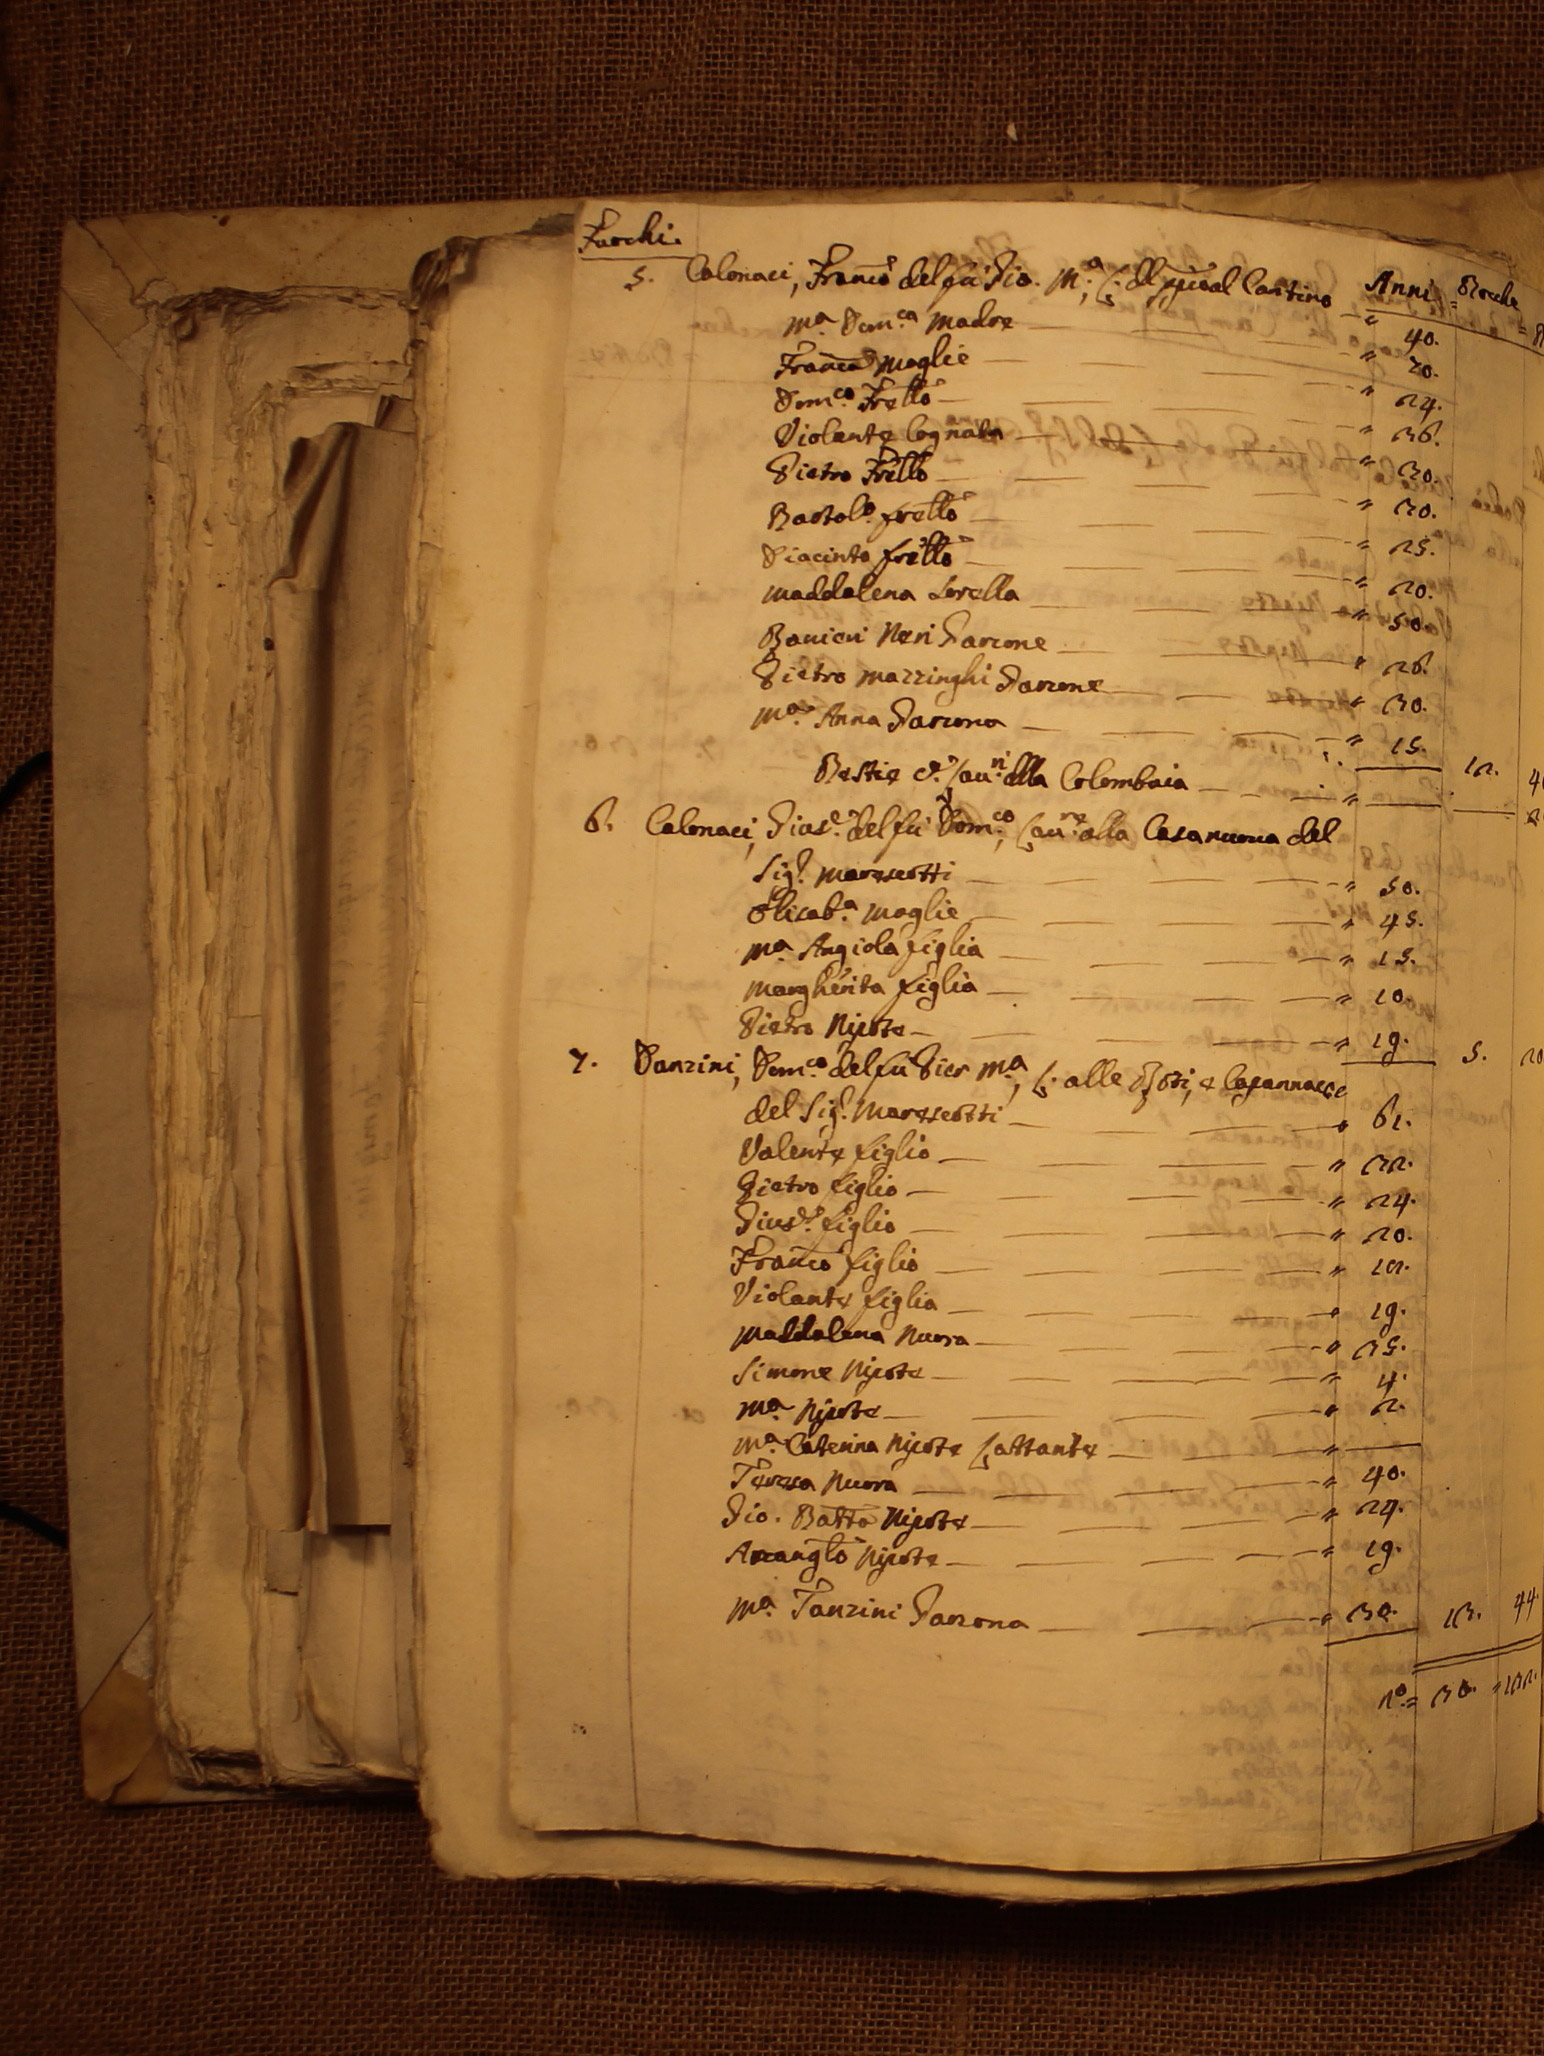 Fuochi.
Anni = Bocche =
5. Calonaci, Franco del fu Gio. Ma. L. del al Cantino " 40.
Ma. Domca. Madre " 70.
Franca Moglie " 24.
Domco. Fratto " 36.
Violante Cognata " 30.
Pietro Fratto " 30.
Bartolo. fratto " 25.
Giacinto fratto " 20.
Maddalena Sorella " 50.
Ranieri Neri Garzone " 26.
Pietro Mazzinghi Garzone " 30.
Ma. Anna Garzona " 15. 12. 4
Bestie Lauri. della Colombaia "
6. Calonaci, Giuse. del fu Domco., Laure. alla Casanuova del
Sigr. Marescotti " 50.
Elisaba. Moglie " 45.
Ma. Angiola figlia " 15.
Margherita figlia " 10.
Pietro Nipote " 19. 5. 20
7. Danzini, Domco. del fu Pier Ma., L. alle , e Casannacce
del Sigr. Marescotti " 61.
Valente figlio " 32.
Pietro figlio " 24.
Giuse. figlio " 20.
Franco figlio " 12.
Violante figlia " 19.
Maddalena Nuora " 35.
Simone Nipote " 4.
Ma. Nipote " 2.
Ma. Caterina Nipote Lattante "
Teresa Nuora " 40.
Gio. Batta Nipote " 24.
Arcanglo Nipote " 19.
Ma. Tanzini Garzona " 30. 13. 44.
No. = 30. = 122.